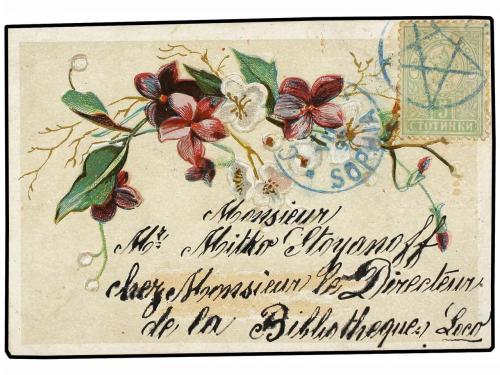 5
СТОТИНКИ
SOPHIA
Monsieur
Mr. Mitko Stoyanoff
chez Monsieur le Directeur
de la Bibliotheque. Loco